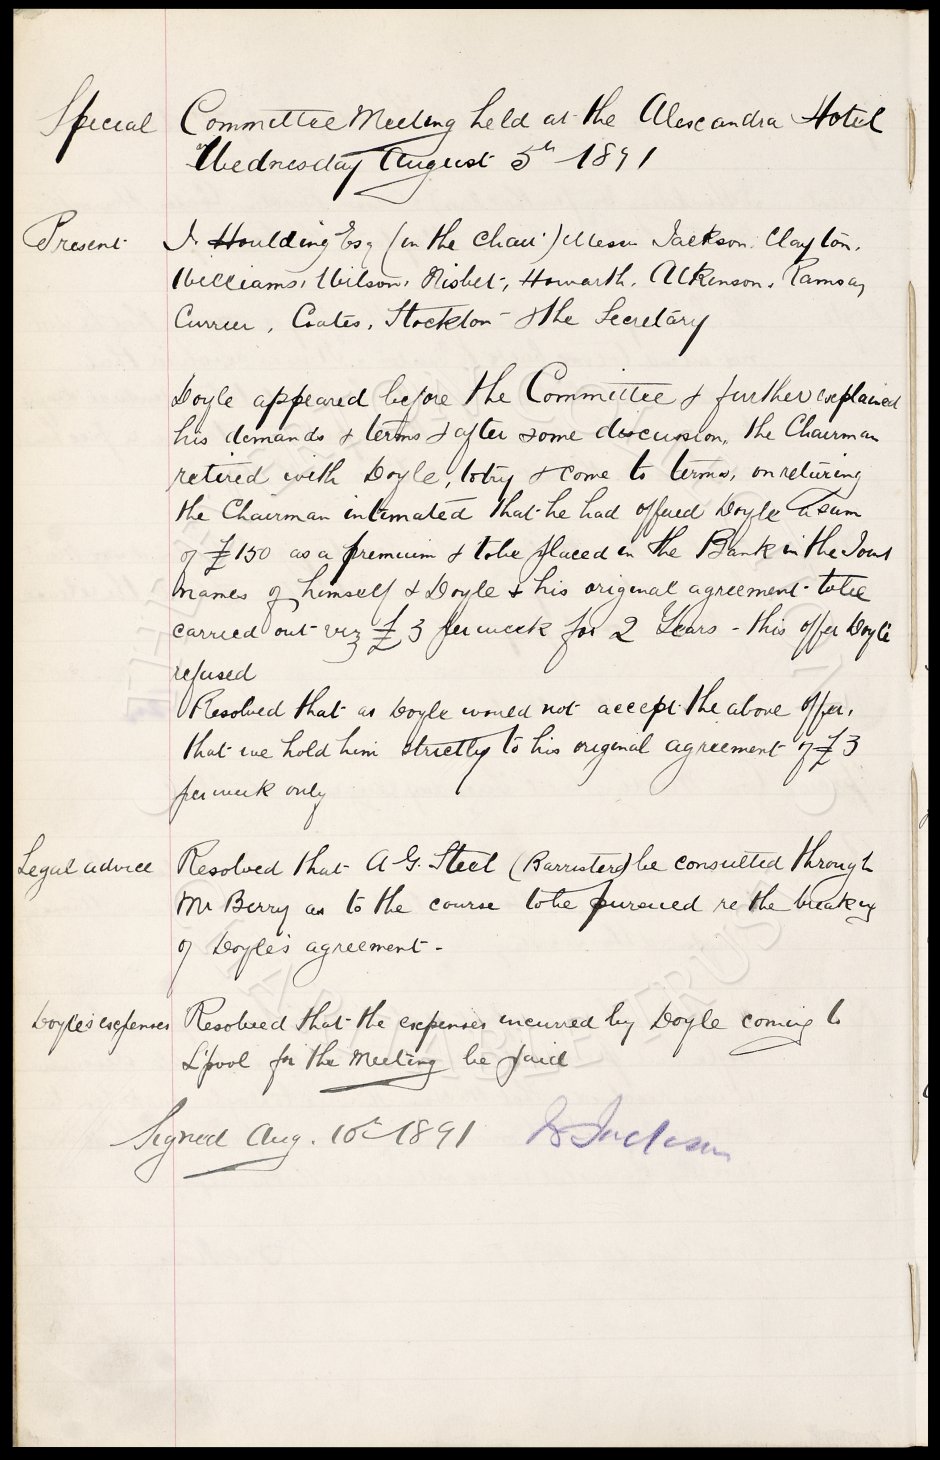 Special Committee Meeting held at the Alexandra Hotel
Wednesday August 5th 1891
Present J. Houlding Esq (in the chair) Messrs Jackson, Clayton,
Williams, Wilson, Nisbet, Howarth, Atkinson, Ramsay
Currier, Coates, Stockton & the Secretary
Doyle appeared before the Committee & further explained
his demands & terms & after some discussion, the Chairman
retired with Doyle, to try & come to terms, on returing
the Chairman intimated that he had offered Doyle a sum
of £150 as a premium & to be placed in the Bank in the Joint
names of himself & Doyle & his original agreement to be
carried out viz £3 per week for 2 Years - this offer Doyle
refused
Resolved that as Doyle would not accept the above offer,
that we hold him strictly to his original agreement of £3
per week only
Legal advice Resolved that A G. Steel (Barrister) be consulted through
Mr Berry as to the course to be pursued re the breaking
of Doyle's agreement -
Doyle's expenses Resolved that the expenses incurred by Doyle coming to
L'pool for the Meeting be paid
Signed Aug. 10th 1891 Jackson